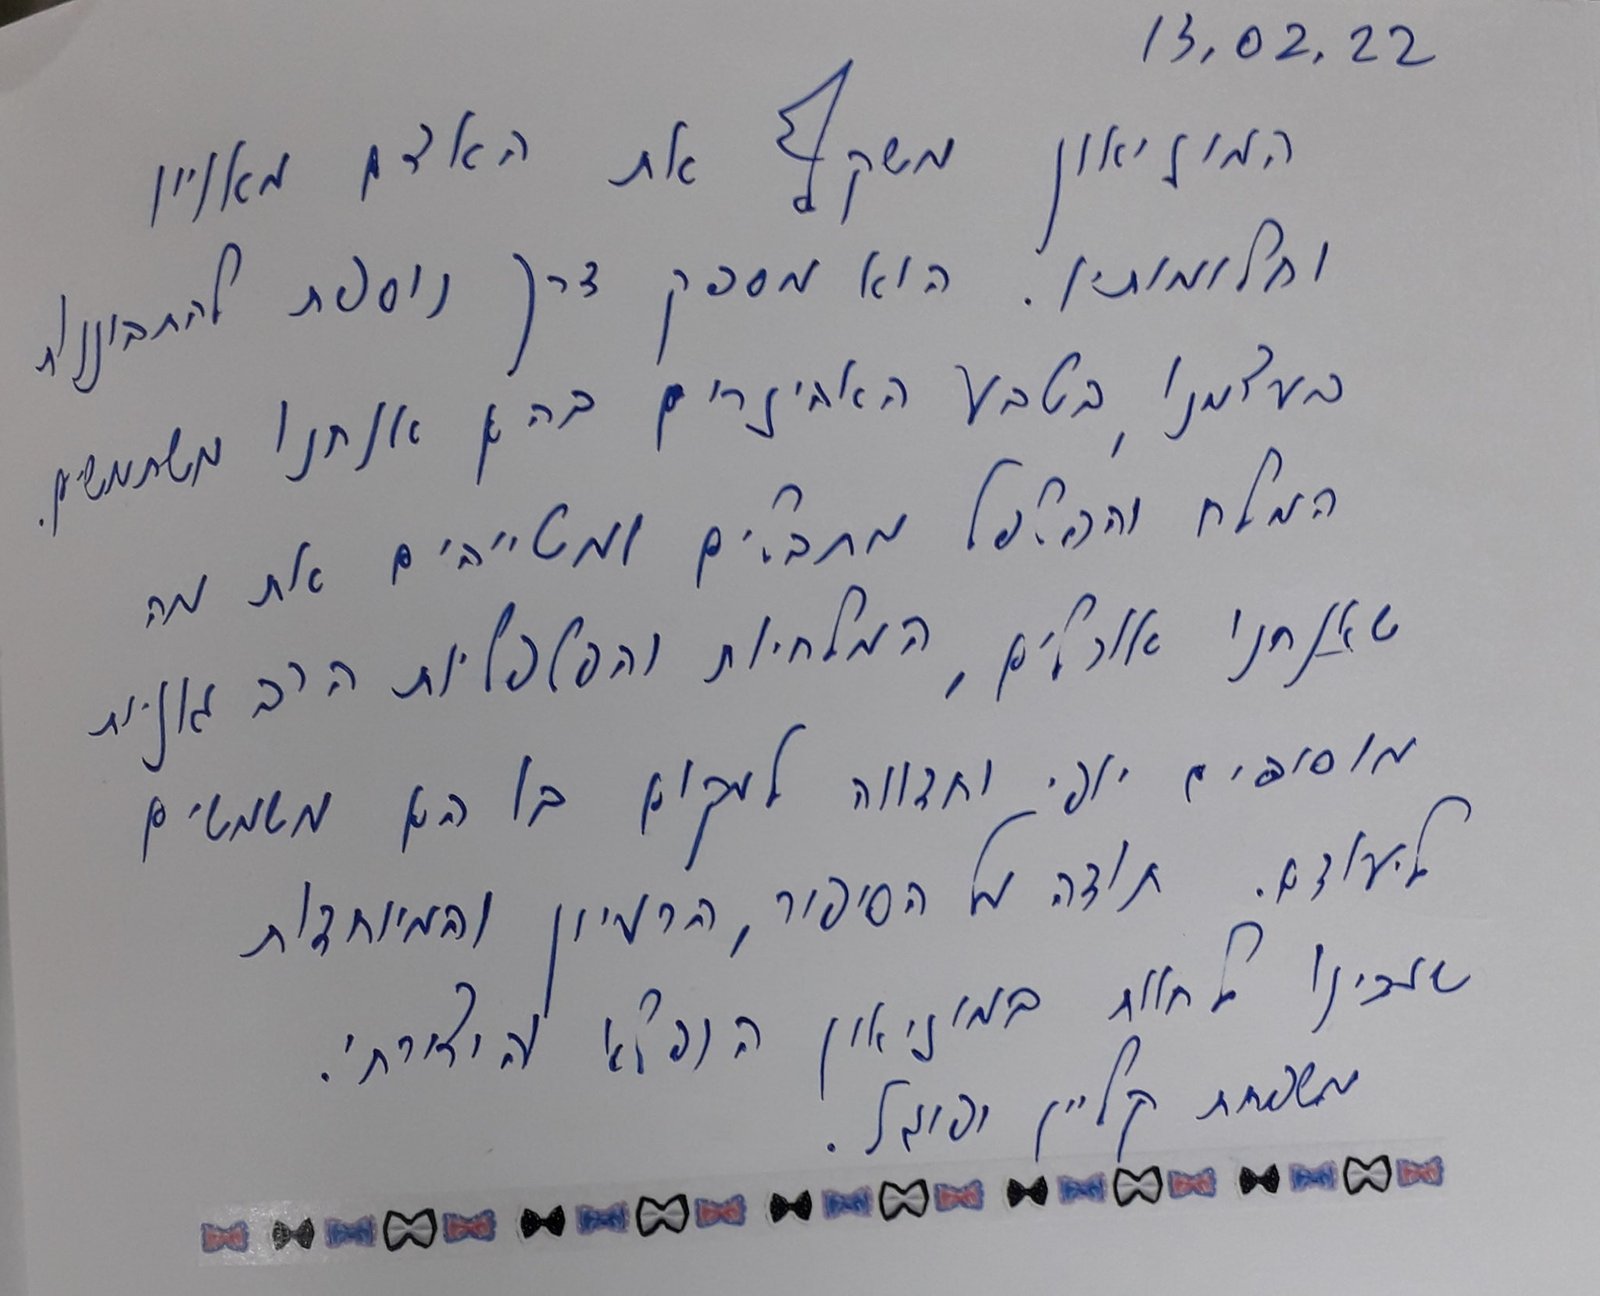 13.02.22
המוזיאון משקף את האדם מאוויו
וחלומותיו. הוא מספק דרך נוספת להתבוננות
בעצמנו, בטבע האביזרים בהם אנחנו משתמשים.
המלח והפלפל מתבלים ומטייבים את מה
שאנחנו אוכלים, המלחיות והפלפליות הרב גוניות
מוסיפים יופי וחדווה למקום בו הם משמשים
ליעודם. תודה על הסיפור, הרעיון והמיוחדות
שזכינו לחוות במוזיאון הנפלא והיצירתי.
משפחת קליין ופוגל.